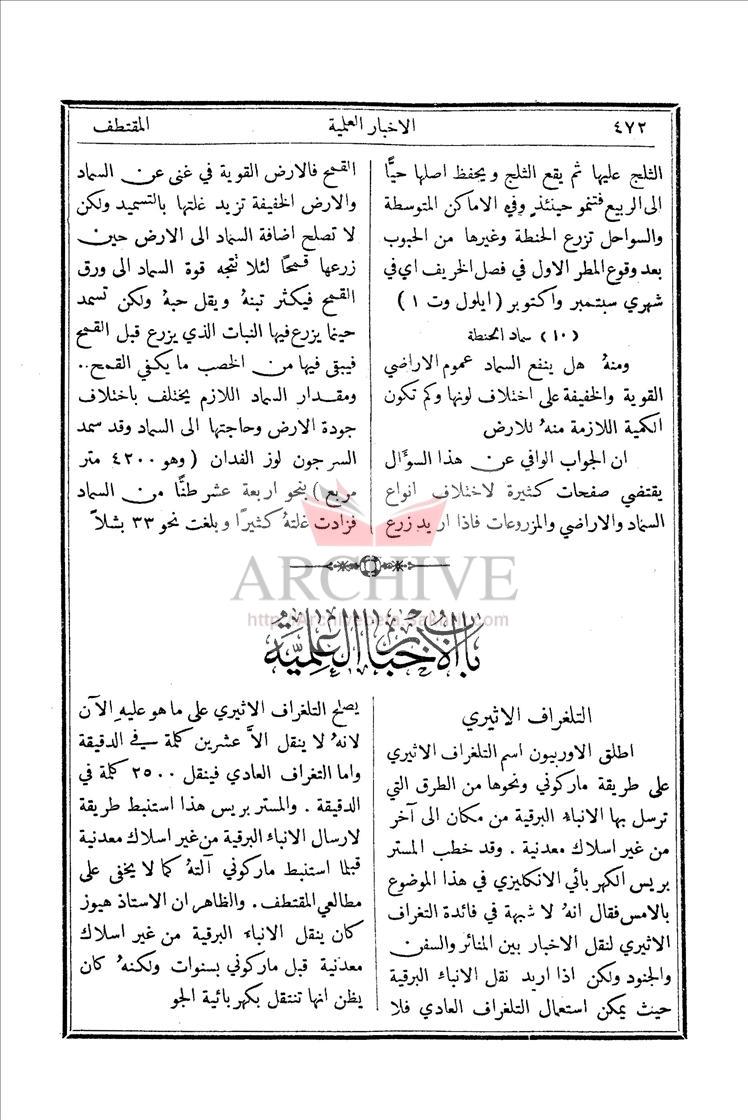 ٤٧٢
الاخبار العلمية
المقتطف
الثلج عليها ثم يقع الثلج ويحفظ اصلها حيًّا
الى الربيع فتنمو حينئذٍ وفي الاماكن المتوسطة
والسواحل تزرع الحنطة وغيرها من الحبوب
بعد وقوع المطر الاول في فصل الخريف اي في
شهري سبتمبر واكتوبر (ايلول وت ١)
(١٠) سماد الحنطة
ومنهُ هل ينفع السماد عموم الاراضي
القوية والخفيفة على اختلاف لونها وكم تكون
الكمية اللازمة منهُ للارض
ان الجواب الوافي عن هذا السؤال
يقتضي صفحات كثيرة لاختلاف انواع
السماد والاراضي والمزروعات فاذا اريد زرع
القمح فالارض القوية في غنى عن السماد
والارض الخفيفة تزيد غلتها بالتسميد ولكن
لا تصلح اضافة السماد الى الارض حين
زرعها قمحًا لئلا تتجه قوة السماد الى ورق
القمح فيكثر تبنهُ ويقل حبهُ ولكن تسمد
حينما يزرع فيها النبات الذي يزرع قبل القمح
فيبقى فيها من الخصب ما يكفي القمح..
ومقدار السماد اللازم يختلف باختلاف
جودة الارض وحاجتها الى السماد وقد سمد
السر جون لوز الفدان (وهو ٤٢٠٠ متر
مربع) بنحو اربعة عشر طنًّا من السماد
فزادت غلتهُ كثيرًا وبلغت نحو ٣٣ بشلاً
ARCHIVE
باب الاخبار العلمية
التلغراف الاثيري
اطلق الاوربيون اسم التلغراف الاثيري
على طريقة ماركوني ونحوها من الطرق التي
ترسل بها الانباء البرقية من مكان الى آخر
من غير اسلاك معدنية . وقد خطب المستر
بريس الكهربائي الانكليزي في هذا الموضوع
بالامس فقال انهُ لا شبهة في فائدة التغراف
الاثيري لنقل الاخبار بين المنائر والسفن
والجنود ولكن اذا اريد نقل الانباء البرقية
حيث يمكن استعمال التلغراف العادي فلا
يصلح التلغراف الاثيري على ما هو عليهِ الآن
لانهُ لا ينقل الاَّ عشرين كلمة في الدقيقة
واما التغراف العادي فينقل ٢٥٠٠ كلمة في
الدقيقة . والمستر بريس هذا استنبط طريقة
لارسال الانباء البرقية من غير اسلاك معدنية
قبلما استنبط ماركوني آلتهُ كما لا يخفى على
مطالعي المقتطف . والظاهر ان الاستاذ هيوز
كان ينقل الانباء البرقية من غير اسلاك
معدنية قبل ماركوني بسنوات ولكنهُ كان
يظن انها تنتقل بكهربائية الجو